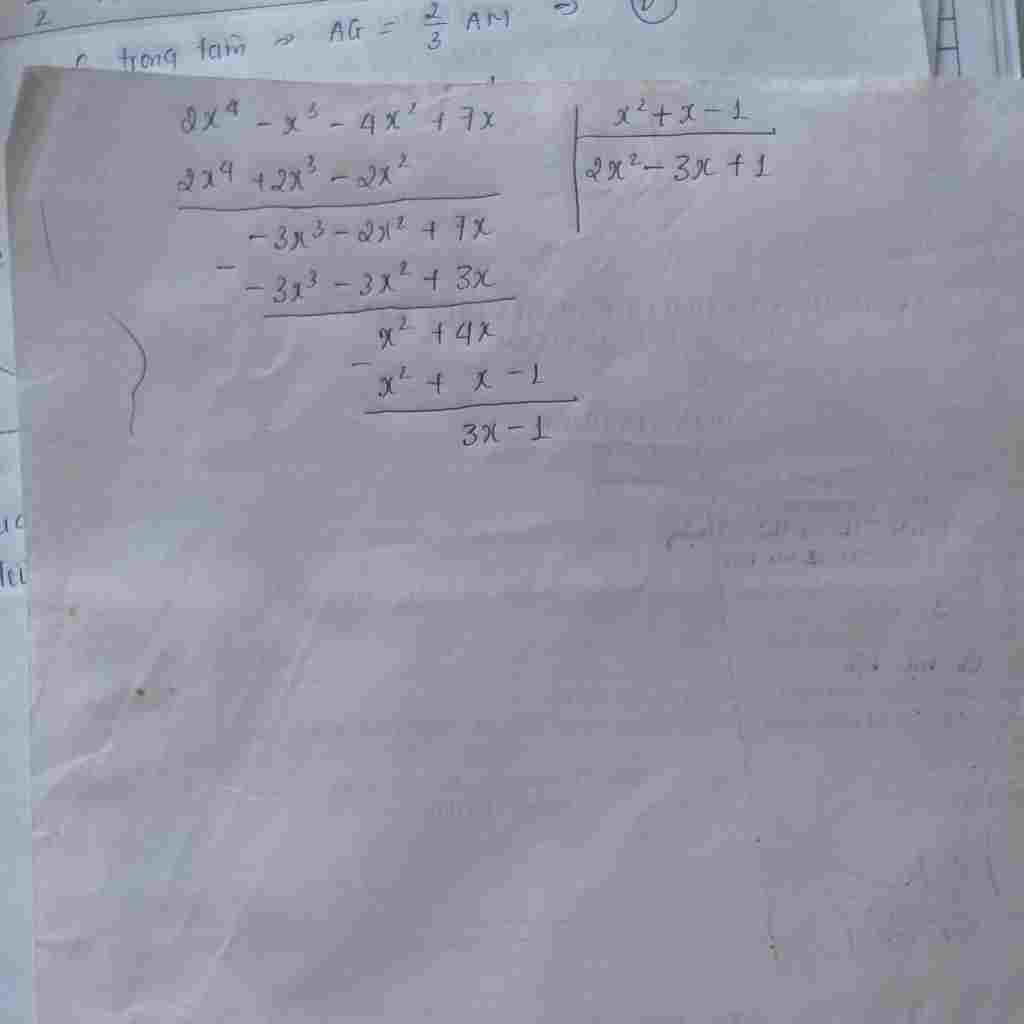 2
trọng tâm ⇒ AG = 2/3 AM ⇒
2x⁴ - x³ - 4x² + 7x | x² + x - 1
2x⁴ + 2x³ - 2x² | 2x² - 3x + 1
-3x³ - 2x² + 7x
-
-3x³ - 3x² + 3x
x² + 4x
-
x² + x - 1
3x - 1